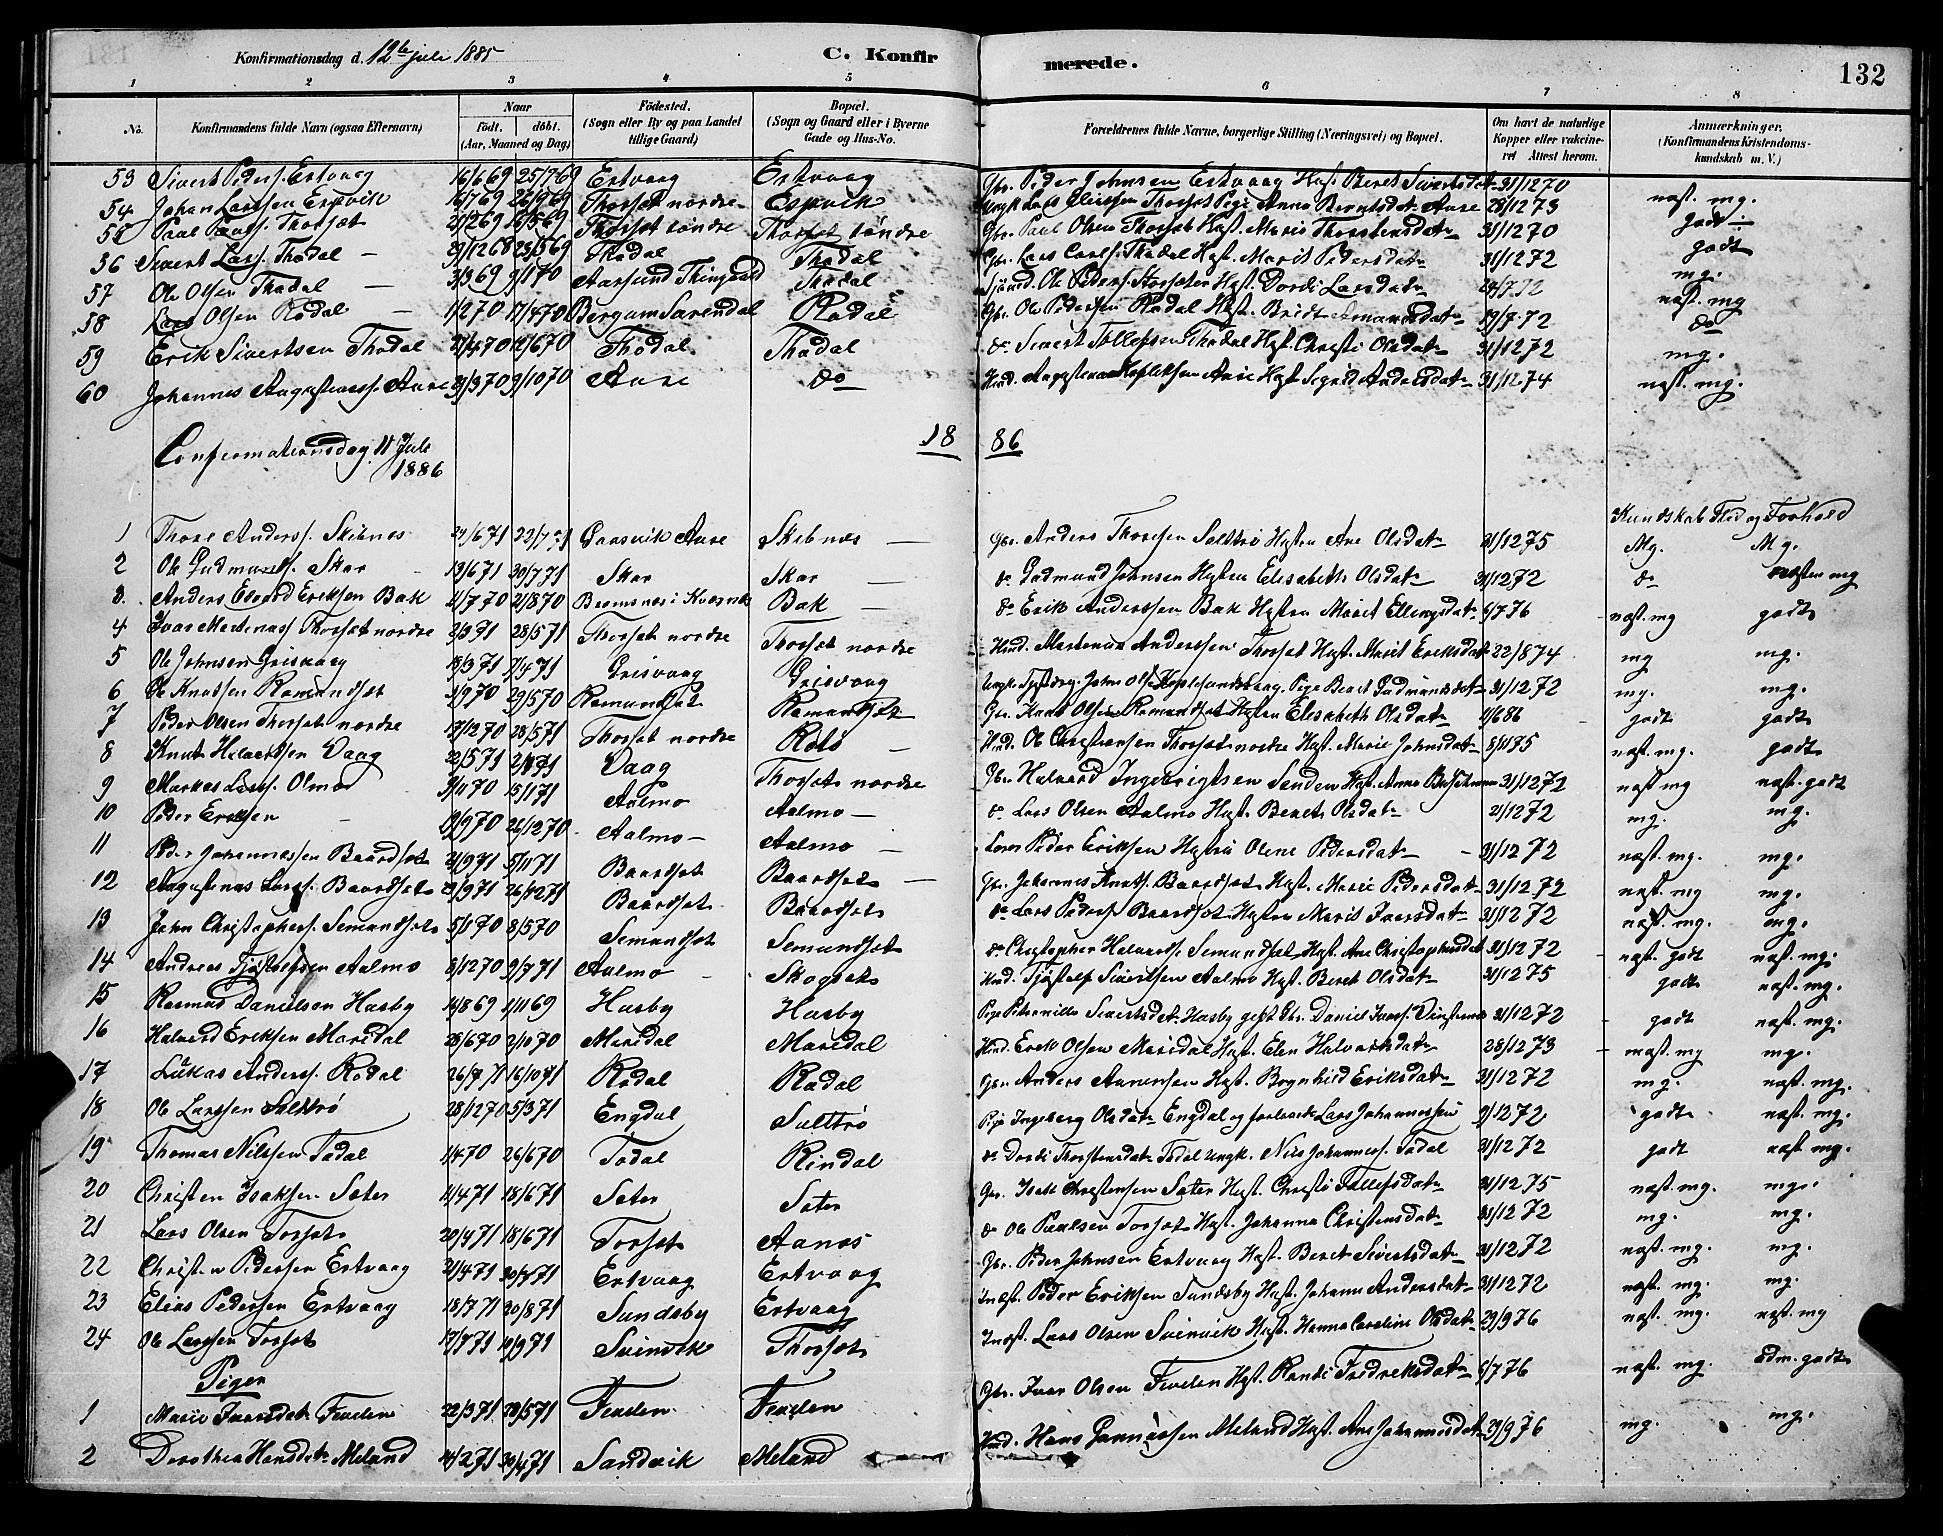 Konfirmationsdag d. 12te juli 1885 C. Konfir merede. 132
1 2 3 4 5 6 7 8
No. Konfirmandens fulde Navn (ogsaa Efternavn) Naar födt. döbt. (Aar, Maaned og Dag) Födested. (Sogn eller By og paa Landet tillige Gaard) Bopæl. (Sogn og Gaard eller i Byerne Gade og Hus-No. Forældrenes fulde Navne, borgerlige Stilling (Næringsvei) og Bopæl. Om havt de naturlige Kopper eller vakcineret Attest herom. Anmærkninger. (Konfirmandens Kristendomskundskab m. V.)
53 Sivert Peders. Ertvaag 16/6 69 25/7 69 Ertvaag Ertvaag Gbr. Peder Johnsen Ertvaag Hust. Beret Sivertsdatr 31/12 70 næst. mg.
54 Johan Larssen Espvik 16/7 69 26/9 69 Thorset nordre Espvik Ungk. Lars Thorset Pige Anna Berntsdatr Aure 28/12 73 godt
55 Paul Pauls. Thorset 21/2 69 16/5 69 Thorset söndre Thorset söndre Gbr. Paul Olsen Thorset Hust. Marit Thorstensdatr 31/12 70 godt
56 Sivert Lars. Thodal 29/12 68 28/5 69 Thodal Thodal Gbr. Lars Carls. Thodal Hust. Marit Pedersdatr 31/12 72 mg.
57 Ole Olsen Thodal 3/3 69 9/1 70 Aarsund Thingvold Thodal Ole Peders. Hust. Dordi Larsdatr 29/7 72 næst. mg
58 Lars Olsen Rodal 1/2 70 17/4 70 Bergum Surendal Rodal Gbr. Ole Pedersen Rodal Hust. Bridt 19/7 72 do
59 Erik Sivertsen Thodal 21/4 70 12/6 70 Thodal Thodal do Sivert Tollefsen Thodal Hust. Christi Olsdatr 31/12 72 mg.
60 Johannes Augustinuss. Aure 29/3 70 9/10 70 Aure do Hmd. Aure Hust Sigrid Andersdatr 31/12 74 næst. mg.
Confirmationsdag 11 Juli 1886
18 86
Kundskab Flid og Forhold
1 Thore Anders. Skibnes 24/6 71 22/7 71 Gaasvik Aure Skibnes Gbr. Anders Thoresen Salttrö Hustru Ane Olsdatr 31/12 75 Mg. Mg.
2 Ole Gudmunds. Skar 13/6 71 30/7 71 Skar Skar do Gudmund Johnsen Hustru Elisabeth Olsdatr 31/12 72 do næsten mg
3. Anders Edvard Eriksen Bak 11/7 70 21/8 70 Bremsnes i Kvernes Bak do Erik Anderssen Bak Hustru Marit Ellingsdatr 6/7 76 næst. mg godt
4 Ivar Martinus Thorset nordre 2/3 71 28/5 71 Thorset nordre Thorset nordre Hmd. Martinus Anderssen Thorset Hust. Marit Eriksdatr 22/8 74 mg mg.
5 Ole Johnsen Grisvaag 18/3 71 7/4 71 Grisvaag Grisvaag Ungk. John Ols. Pige Beret Gudmundsdatr 31/12 72 mg. mg.
6 Ole Knutsen Romundset 3/9 70 29/5 70 Romundset Romundset Gbr. Knut Olsen Romundset Hustru Elisabeth Olsdatr 1/6 86 godt godt
7 Peder Olsen Thorset nordre 17/12 70 28/5 71 Thorset nordre Rotö Hmd. Ole Christensen Thorset nordre Hust. Marie Johnsdatr 8/11 75 næst mg. godt
8 Knut Halvorssen Vaag 22/5 71 2/7 71 Vaag Thorset nordre Gbr. Halvord Ingebrigtsen Sanden Hust. Anna 31/12 72 næst mg næst. godt
9 Markus Larss. Olmo 3/11 70 15/1 71 Aalmo Aalmo do Lars Olsen Aalmo Hust. Bereth Olsdatr 21/12 72 mg. mg.
10 Peder Eriksen 19/9 70 26/12 70 Aalmo Aalmo Peder Eriksen Hustru Olene Pedersdatr 31/12 72 næst. mg. mg.
11 Peder Johannessen Baardset 21/9 71 5/11 71 Baardset Baardset Gbr. Johannes Knuts. Baardset Hust. Marie Pedersdatr 31/12 72 næst. mg mg.
12 Augustinus Larss. Baardset 29/9 71 26/12 71 Baardset Baardset do Lars Peders. Baardset Hustru Marit Ivarsdatr 31/12 72 næst. mg. mg.
13 John Christophers. Semundset 5/1 70 8/5 70 Semundset Semundset do Christopher Halvords. Semundset Hust. Ane Christophersdat 31/12 72 næst. godt næst. mg.
14 Andreas Tjöstelsen Aalmo 8/12 70 9/7 71 Aalmo Skogset Hmd. Tjöstolf Sivertsen Aalmo Hust. Beret Olsdatr 31/12 75 godt næst. mg.
15 Rasmus Danielsen Husby 14/8 69 1/11 69 Husby Husby Pige Petronille Sivertsdatr Husby gift Gbr. Daniel 31/12 72 godt næst. mg.
16 Halvord Eriksen Maredal 28/6 70 2/10 70 Maredal Maredal Hmd. Erik Olsen Maredal Hust. Elen Halvorsdatr 28/12 73 næst. mg mg.
17 Lukas Anders. Rodal 26/7 71 16/10 71 Rodal Rodal Gbr. Anders Aanensen Hust. Bognhild Eriksdatr 31/12 72 mg. næst. mg.
18 Ole Larssen Salttrö 28/12 70 5/3 71 Engdal Salttrö Pige Ingeborg Olsdatr Engdal og Lars Johannessen 9/12 72 godt næst. mg.
19 Thomas Nilssen Todal 1/4 70 26/6 70 Todal Rindal do Dordi Thorstensdatr Todal ungk. Nils Johanness. Todal 31/12 72 godt næst. mg.
20 Christen Isaksen Sæter 11/4 71 18/6 71 Sæter Sæter Gbr. Isak Christensen Sæter Hust. Christi Tollefsdatr 31/12 75 næst. mg. mg.
21 Lars Olsen Torset 20/4 71 18/6 71 Torset Aanes do Ole Paulsen Torset Hust. Johanna Christensdatr 31/12 72 mg. mg.
22 Christen Pedersen Ertvaag 21/4 71 30/7 71 Ertvaag Ertvaag Gbr. Peder Johnsen Ertvaag Hust. Beret Sivertsdatr 31/12 72 næst. mg. mg.
23 Elias Pedersen Ertvaag 18/7 71 20/8 71 Sundsby Ertvaag Inst. Peder Eriksen Sundsby Hust. Johanna Andersdatr 31/12 72 næst. mg. mg.
24 Ole Larssen Torset 17/7 71 10/9 71 Svinvik Thorset Inst. Lars Olsen Svinvik Hust. Hanna Caroline Olsdatr 29/9 76 næst. mg. næst. mg
Piger
1 Marit Ivarsdatr Fevelen 22/3 71 28/5 71 Fevelen Fevelen Gbr. Ivar Olsen Fevelen Hust. Randi Fredreksdatr 6/7 76 næst. mg. godt
2 Dorothea Hansdatr Meland 14/2 71 30/4 71 Sandvik Meland Hmd. Hans Meland Hust. Ane Johannesdatr 29/9 76 mg. mg.